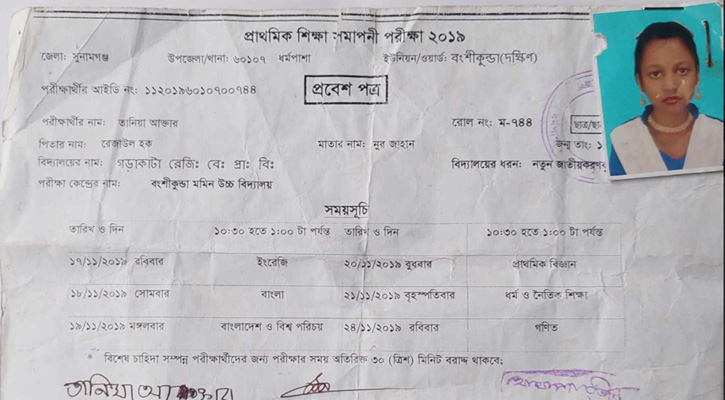 প্রাথমিক শিক্ষা সমাপনী পরীক্ষা ২০১৯
জেলা: সুনামগঞ্জ উপজেলা/থানা: ৬০১০৭ ধর্মপাশা ইউনিয়ন/ওয়ার্ড: বংশীকুন্ডা(দক্ষিণ)
পরীক্ষার্থীর আইডি নং: ১১২০১৯৬০১০৭০০৭৪৪ প্রবেশ পত্র
পরীক্ষার্থীর নাম: তানিয়া আক্তার রোল নং: ম-৭৪৪ ছাত্র/ছা
পিতার নাম: রেজাউল হক মাতার নাম: নুর জাহান জন্ম তাং: ১
বিদ্যালয়ের নাম: গড়াকাটা রেজি: বে: প্রা: বি: বিদ্যালয়ের ধরন: নতুন জাতীয়করণ
পরীক্ষা কেন্দ্রের নাম: বংশীকুন্ডা মমিন উচ্চ বিদ্যালয়
সময়সূচি
তারিখ ও দিন ১০:৩০ হতে ১:০০ টা পর্যন্ত তারিখ ও দিন ১০:৩০ হতে ১:০০ টা পর্যন্ত
১৭/১১/২০১৯ রবিবার ইংরেজি ২০/১১/২০১৯ বুধবার প্রাথমিক বিজ্ঞান
১৮/১১/২০১৯ সোমবার বাংলা ২১/১১/২০১৯ বৃহস্পতিবার ধর্ম ও নৈতিক শিক্ষা
১৯/১১/২০১৯ মঙ্গলবার বাংলাদেশ ও বিশ্ব পরিচয় ২৪/১১/২০১৯ রবিবার গণিত
* বিশেষ চাহিদা সম্পন্ন পরীক্ষার্থীদের জন্য পরীক্ষার সময় অতিরিক্ত ৩০ (ত্রিশ) মিনিট বরাদ্দ থাকবে;
তানিয়া